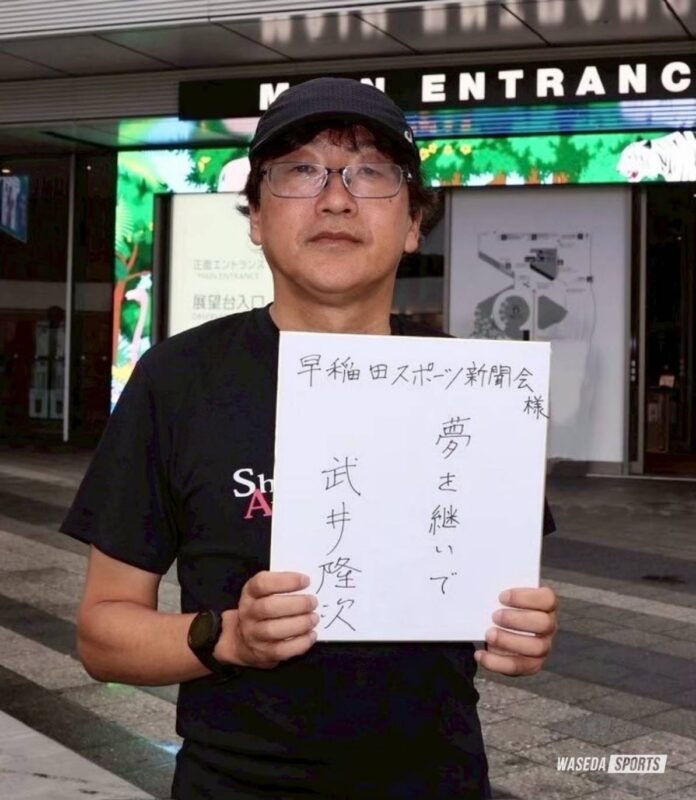 MAIN ENTRANC
正面エントランス
MAIN ENTRANCE
展望台入口
早稲田スポーツ新聞会
様
夢を継いで
武井隆次
Sh
A
WASEDA SPORTS